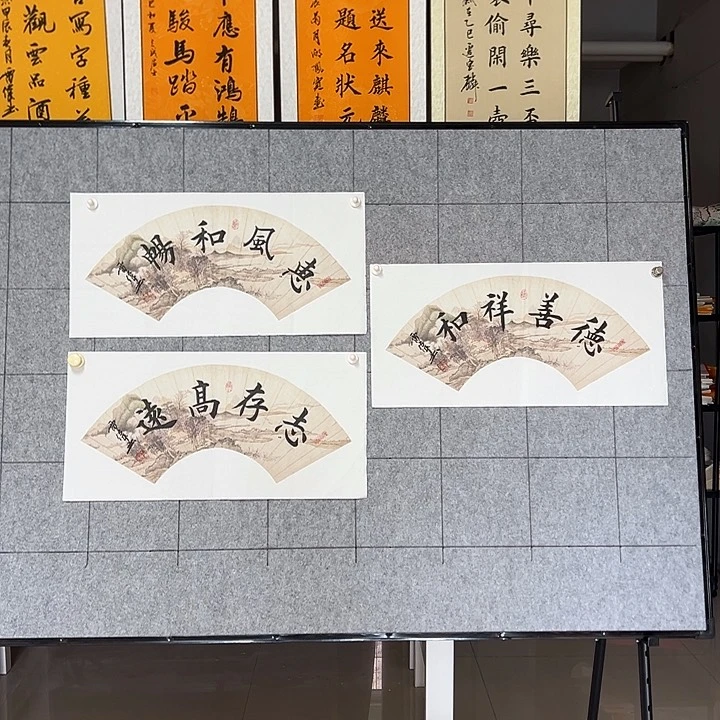 尋樂三
偷閑一壺
送來麒麟
題名狀元
應有鴻鵠
駿馬踏平
寫字種
觀雲品酒
惠風和暢
德善祥和
志存高遠